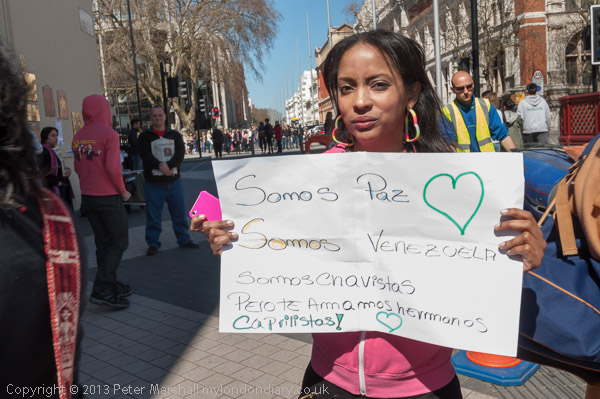 Somos Paz
Somos Venezuela
Somos Chavistas
Pero te Amamos hermanos
Caprilistas!
Copyright © 2013 Peter Marshall mylondondiary.co.uk